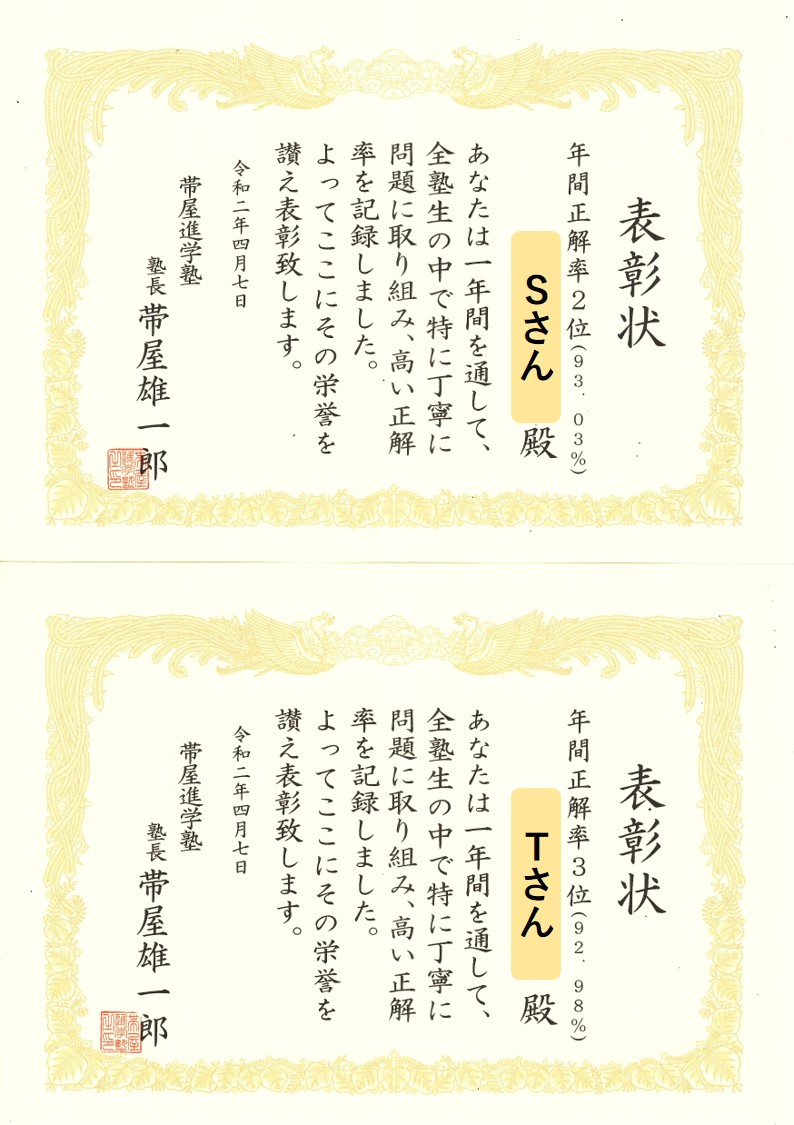 表彰状
年間正解率2位(93.03%)
Sさん 殿
あなたは一年間を通して、
全塾生の中で特に丁寧に
問題に取り組み、高い正解
率を記録しました。
よってここにその栄誉を
讃え表彰致します。
令和二年四月七日
帯屋進学塾
塾長 帯屋雄一郎
表彰状
年間正解率3位(92.98%)
Tさん 殿
あなたは一年間を通して、
全塾生の中で特に丁寧に
問題に取り組み、高い正解
率を記録しました。
よってここにその栄誉を
讃え表彰致します。
令和二年四月七日
帯屋進学塾
塾長 帯屋雄一郎